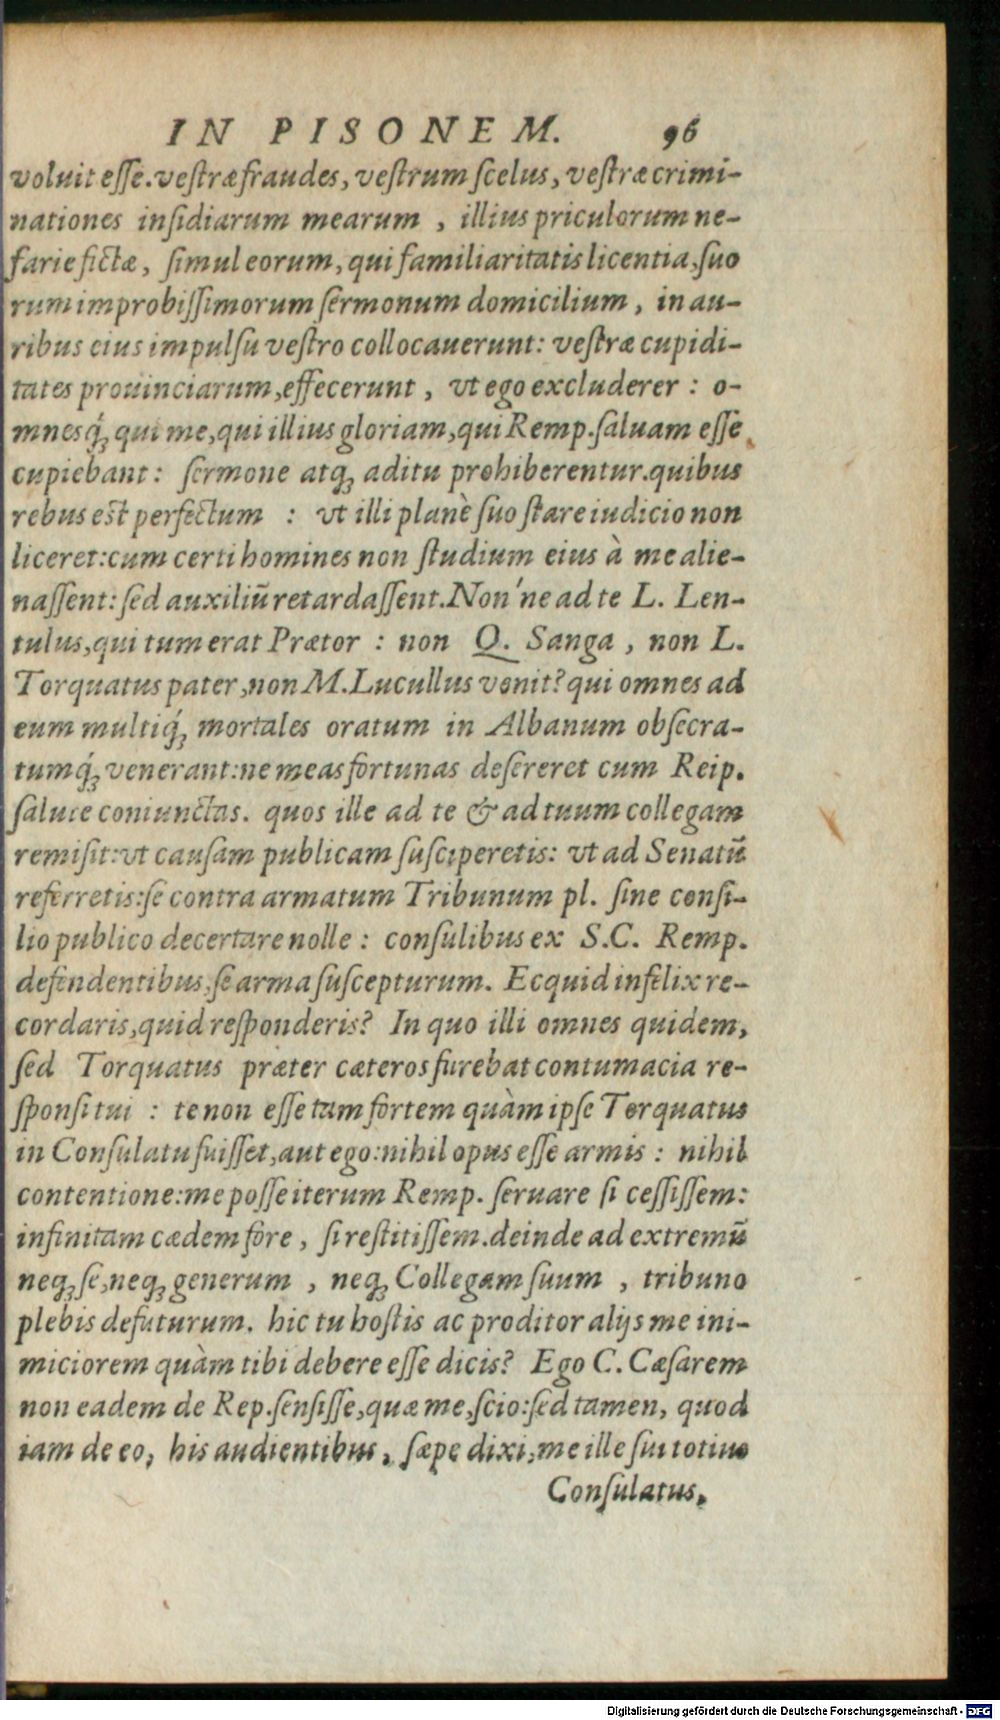 IN PISONEM. 96
voluit eſſe. veſtræ fraudes, veſtrum ſcelus, veſtræ crimi-
nationes inſidiarum mearum , illius priculorum ne-
farie fictæ, ſimul eorum, qui familiaritatis licentia, ſuo
rum improbiſſimorum ſermonum domicilium, in au-
ribus eius impulſu veſtro collocauerunt: veſtræ cupidi-
tates prouinciarum, effecerunt , vt ego excluderer : o-
mnesq́ꝫ qui me, qui illius gloriam, qui Remp. ſaluam eſſe
cupiebant: ſermone atqꝫ aditu prohiberentur. quibus
rebus est perfectum : vt illi planè ſuo ſtare iudicio non
liceret: cum certi homines non ſtudium eius à me alie-
naſſent: ſed auxiliū retardaſſent. Non'ne ad te L. Len-
tulus, qui tum erat Prætor : non Q. Sanga , non L.
Torquatus pater, non M. Lucullus venit? qui omnes ad
eum multiq́ꝫ mortales oratum in Albanum obſecra-
tumq́ꝫ venerant: ne meas fortunas deſereret cum Reip.
ſalute coniunctas. quos ille ad te & ad tuum collegam
remiſit: vt cauſam publicam ſuſciperetis: vt ad Senatū
referretis: ſe contra armatum Tribunum pl. ſine conſi-
lio publico decertare nolle : conſulibus ex S.C. Remp.
defendentibus, ſe arma ſuſcepturum. Ecquid infelix re-
cordaris, quid reſponderis? In quo illi omnes quidem,
ſed Torquatus præter cæteros furebat contumacia re-
ſponſi tui : te non eſſe tam fortem quàm ipſe Torquatus
in Conſulatu fuiſſet, aut ego: nihil opus eſſe armis : nihil
contentione: me poſſe iterum Remp. ſeruare ſi ceſſiſſem:
infinitam cædem fore, ſi reſtitiſſem. deinde ad extremū
neqꝫ ſe, neqꝫ generum , neqꝫ Collegam ſuum , tribuno
plebis defuturum. hic tu hoſtis ac proditor alijs me ini-
miciorem quàm tibi debere eſſe dicis? Ego C. Cæſarem
non eadem de Rep. ſenſiſſe, quæ me, ſcio: ſed tamen, quod
iam de eo, his audientibus, ſæpe dixi, me ille ſui totius
Conſulatus,
Digitalisierung gefördert durch die Deutsche Forschungsgemeinschaft - DFG